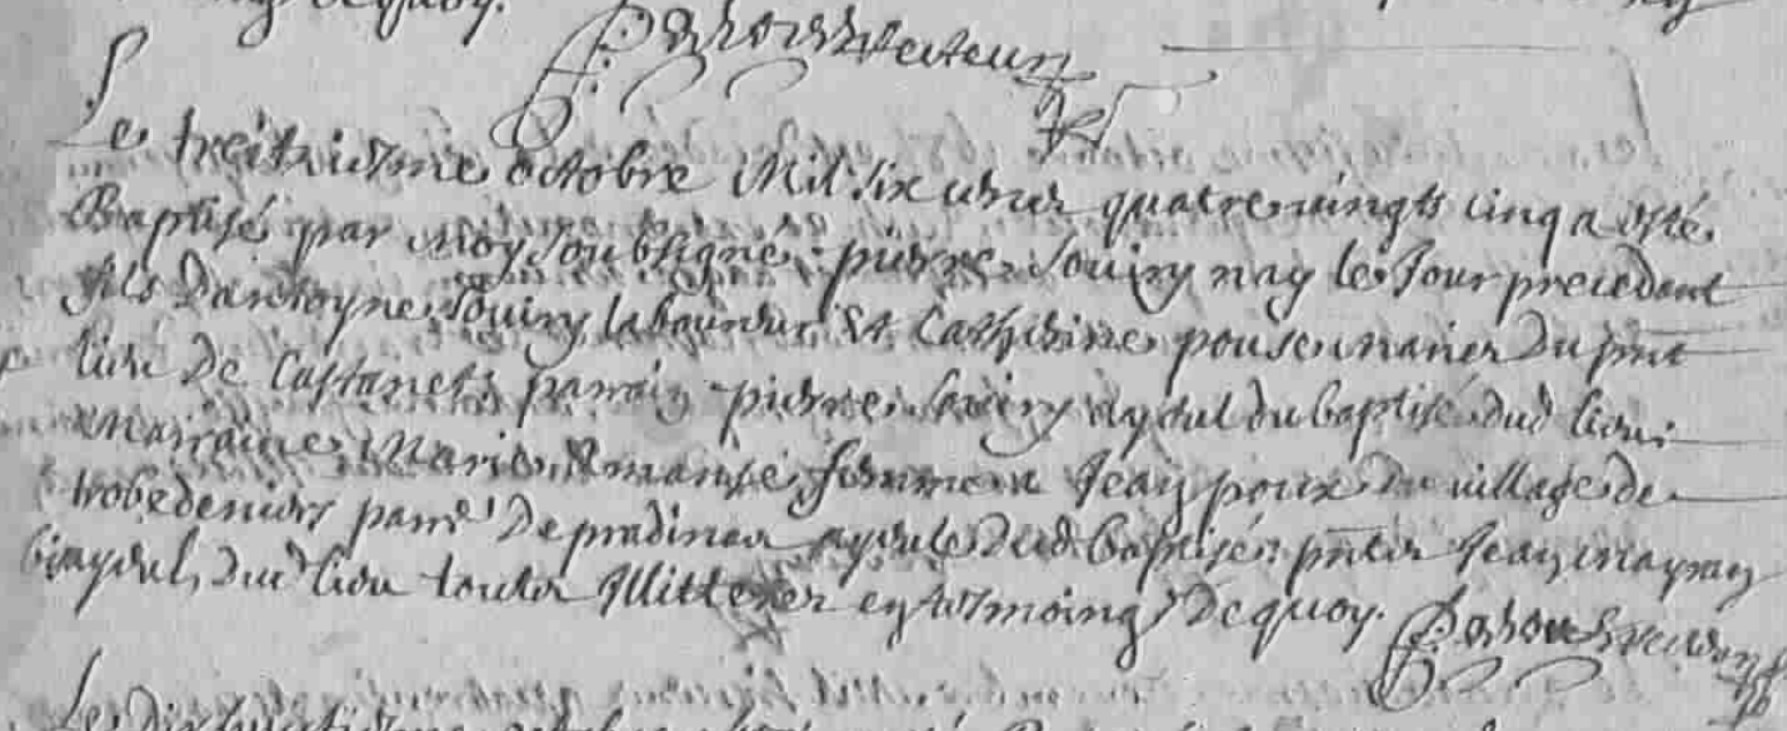 dequoy.
recteur
Le treitziesme octobre Mil six cens quatre vingts cinq a esté
Baptisé par moy soubsigné pierre souiry nay le Jour precedent
fils Dantoyne souiry laboureur et Catherine du pnt
lieu De Castanet, parrain pierre souiry ayeul du baptisé dud lieu
marraine Marie femme a Jean poux du village de
parre De pradines ayeule dud baptisé: pntes Jean mayran
dud lieu toutes Illitteres en tesmoing Dequoy.
Le Dix